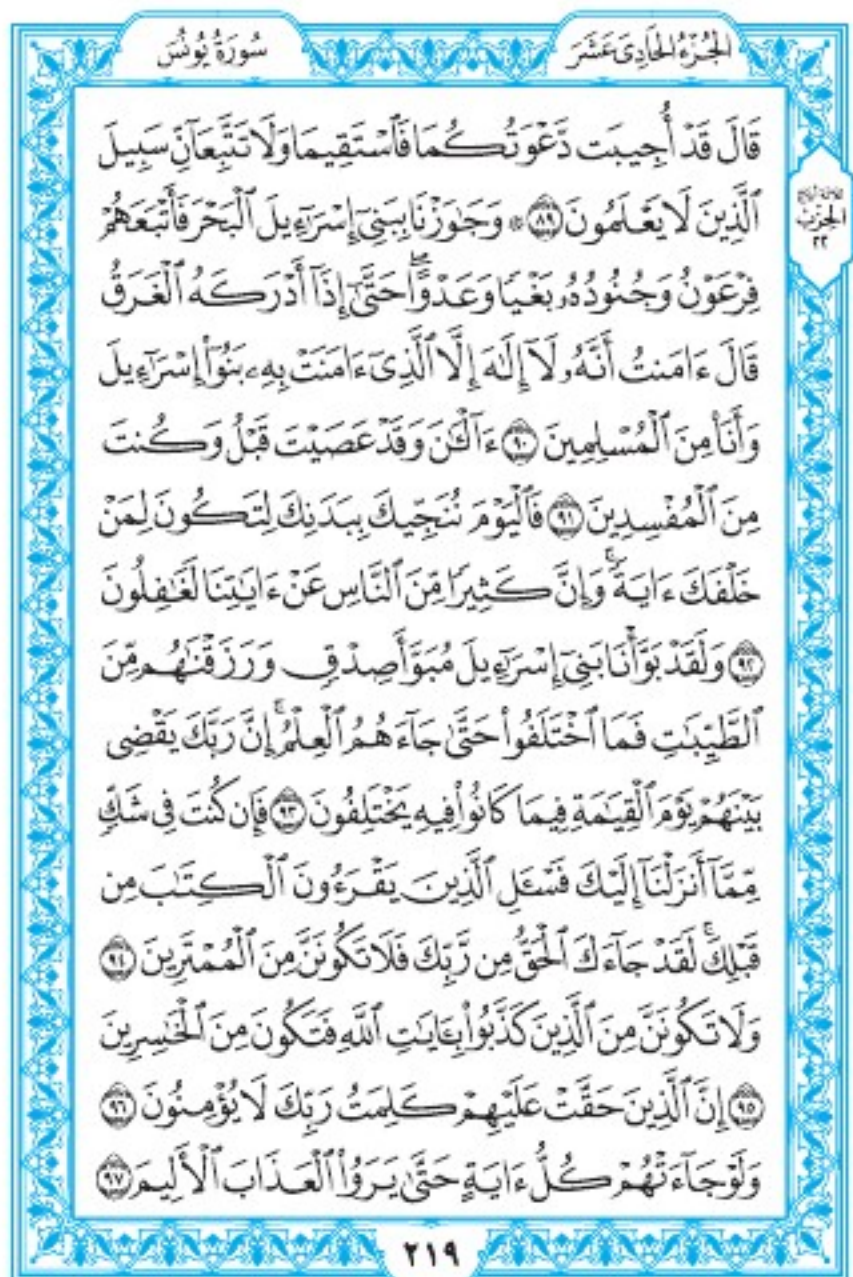 الجُزْءُ الحَادِىَ عَشَرَ
سُورَةُ يُونُسَ
قَالَ قَدْ أُجِيبَت دَّعْوَتُكُمَا فَٱسْتَقِيمَا وَلَا تَتَّبِعَآنِّ سَبِيلَ
ٱلَّذِينَ لَا يَعْلَمُونَ ٨٩ ۞ وَجَٰوَزْنَا بِبَنِىٓ إِسْرَٰٓءِيلَ ٱلْبَحْرَ فَأَتْبَعَهُمْ
فِرْعَوْنُ وَجُنُودُهُۥ بَغْيًا وَعَدْوًا ۖ حَتَّىٰٓ إِذَآ أَدْرَكَهُ ٱلْغَرَقُ
قَالَ ءَامَنتُ أَنَّهُۥ لَآ إِلَٰهَ إِلَّا ٱلَّذِىٓ ءَامَنَتْ بِهِۦ بَنُوٓا۟ إِسْرَٰٓءِيلَ
وَأَنَا۠ مِنَ ٱلْمُسْلِمِينَ ٩٠ ءَآلْـَٰٔنَ وَقَدْ عَصَيْتَ قَبْلُ وَكُنتَ
مِنَ ٱلْمُفْسِدِينَ ٩١ فَٱلْيَوْمَ نُنَجِّيكَ بِبَدَنِكَ لِتَكُونَ لِمَنْ
خَلْفَكَ ءَايَةً ۚ وَإِنَّ كَثِيرًا مِّنَ ٱلنَّاسِ عَنْ ءَايَٰتِنَا لَغَٰفِلُونَ
٩٢ وَلَقَدْ بَوَّأْنَا بَنِىٓ إِسْرَٰٓءِيلَ مُبَوَّأَ صِدْقٍ وَرَزَقْنَٰهُم مِّنَ
ٱلطَّيِّبَٰتِ فَمَا ٱخْتَلَفُوا۟ حَتَّىٰ جَآءَهُمُ ٱلْعِلْمُ ۚ إِنَّ رَبَّكَ يَقْضِى
بَيْنَهُمْ يَوْمَ ٱلْقِيَٰمَةِ فِيمَا كَانُوا۟ فِيهِ يَخْتَلِفُونَ ٩٣ فَإِن كُنتَ فِى شَكٍّ
مِّمَّآ أَنزَلْنَآ إِلَيْكَ فَسْـَٔلِ ٱلَّذِينَ يَقْرَءُونَ ٱلْكِتَٰبَ مِن
قَبْلِكَ ۚ لَقَدْ جَآءَكَ ٱلْحَقُّ مِن رَّبِّكَ فَلَا تَكُونَنَّ مِنَ ٱلْمُمْتَرِينَ ٩٤
وَلَا تَكُونَنَّ مِنَ ٱلَّذِينَ كَذَّبُوا۟ بِـَٔايَٰتِ ٱللَّهِ فَتَكُونَ مِنَ ٱلْخَٰسِرِينَ
٩٥ إِنَّ ٱلَّذِينَ حَقَّتْ عَلَيْهِمْ كَلِمَتُ رَبِّكَ لَا يُؤْمِنُونَ ٩٦
وَلَوْ جَآءَتْهُمْ كُلُّ ءَايَةٍ حَتَّىٰ يَرَوُا۟ ٱلْعَذَابَ ٱلْأَلِيمَ ٩٧
الحِزْبُ
٢٢
٢١٩